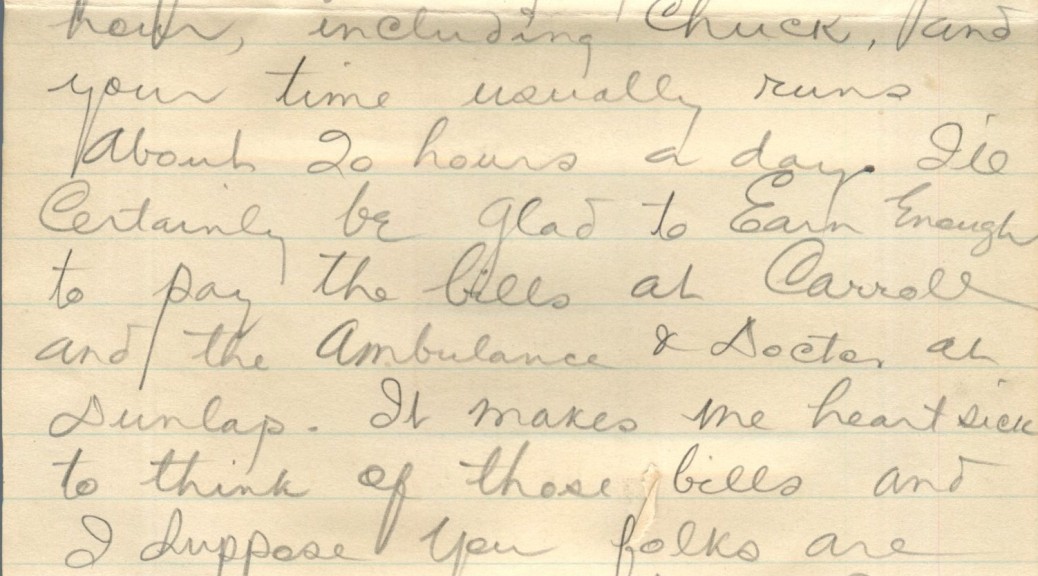 hour, including Chuck, and
your time usually runs
About 20 hours a day. I'll
Certainly be glad to Earn Enough
to pay the bills at Carroll
and the Ambulance & Doctor at
Dunlap. It makes me heart sick
to think of those bills and
I suppose you folks are